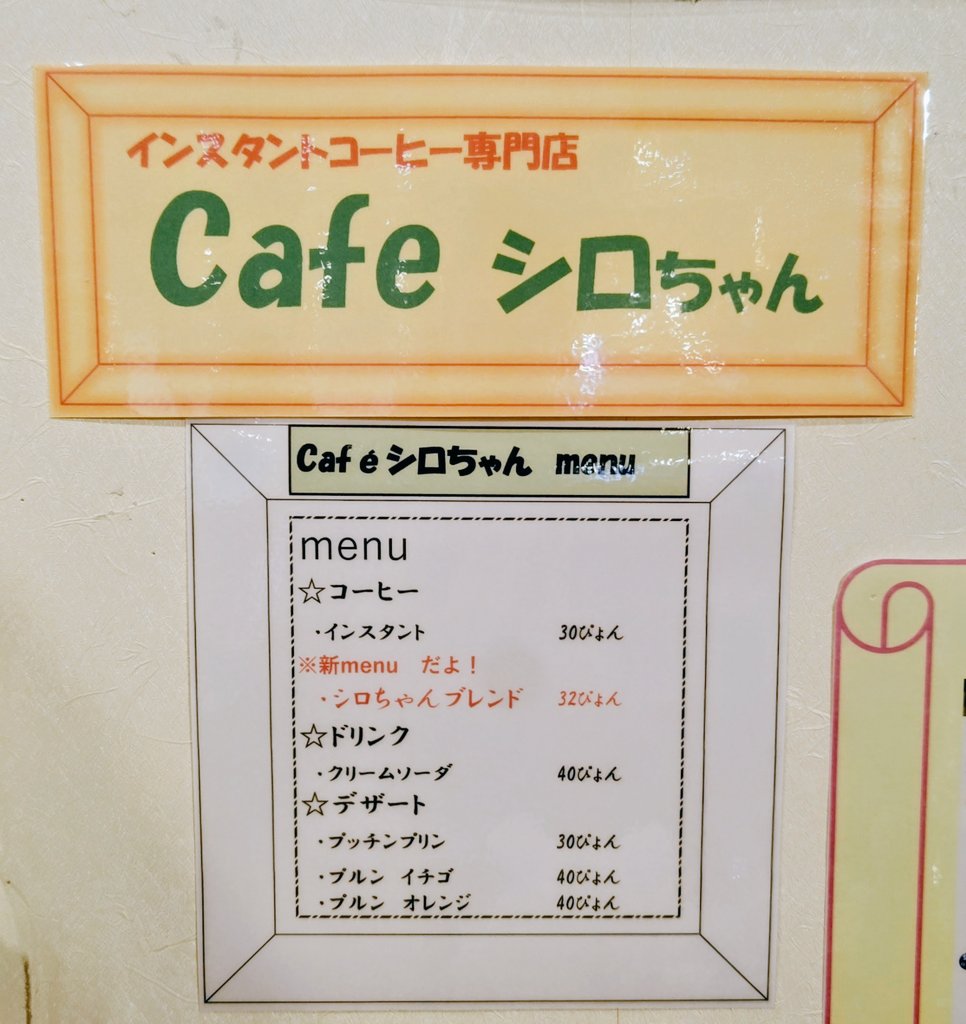 インスタントコーヒー専門店
Cafe シロちゃん
Caféシロちゃん menu
menu
☆コーヒー
・インスタント 30ぴょん
※新menu だよ！
・シロちゃんブレンド 32ぴょん
☆ドリンク
・クリームソーダ 40ぴょん
☆デザート
・プッチンプリン 30ぴょん
・プルン イチゴ 40ぴょん
・プルン オレンジ 40ぴょん